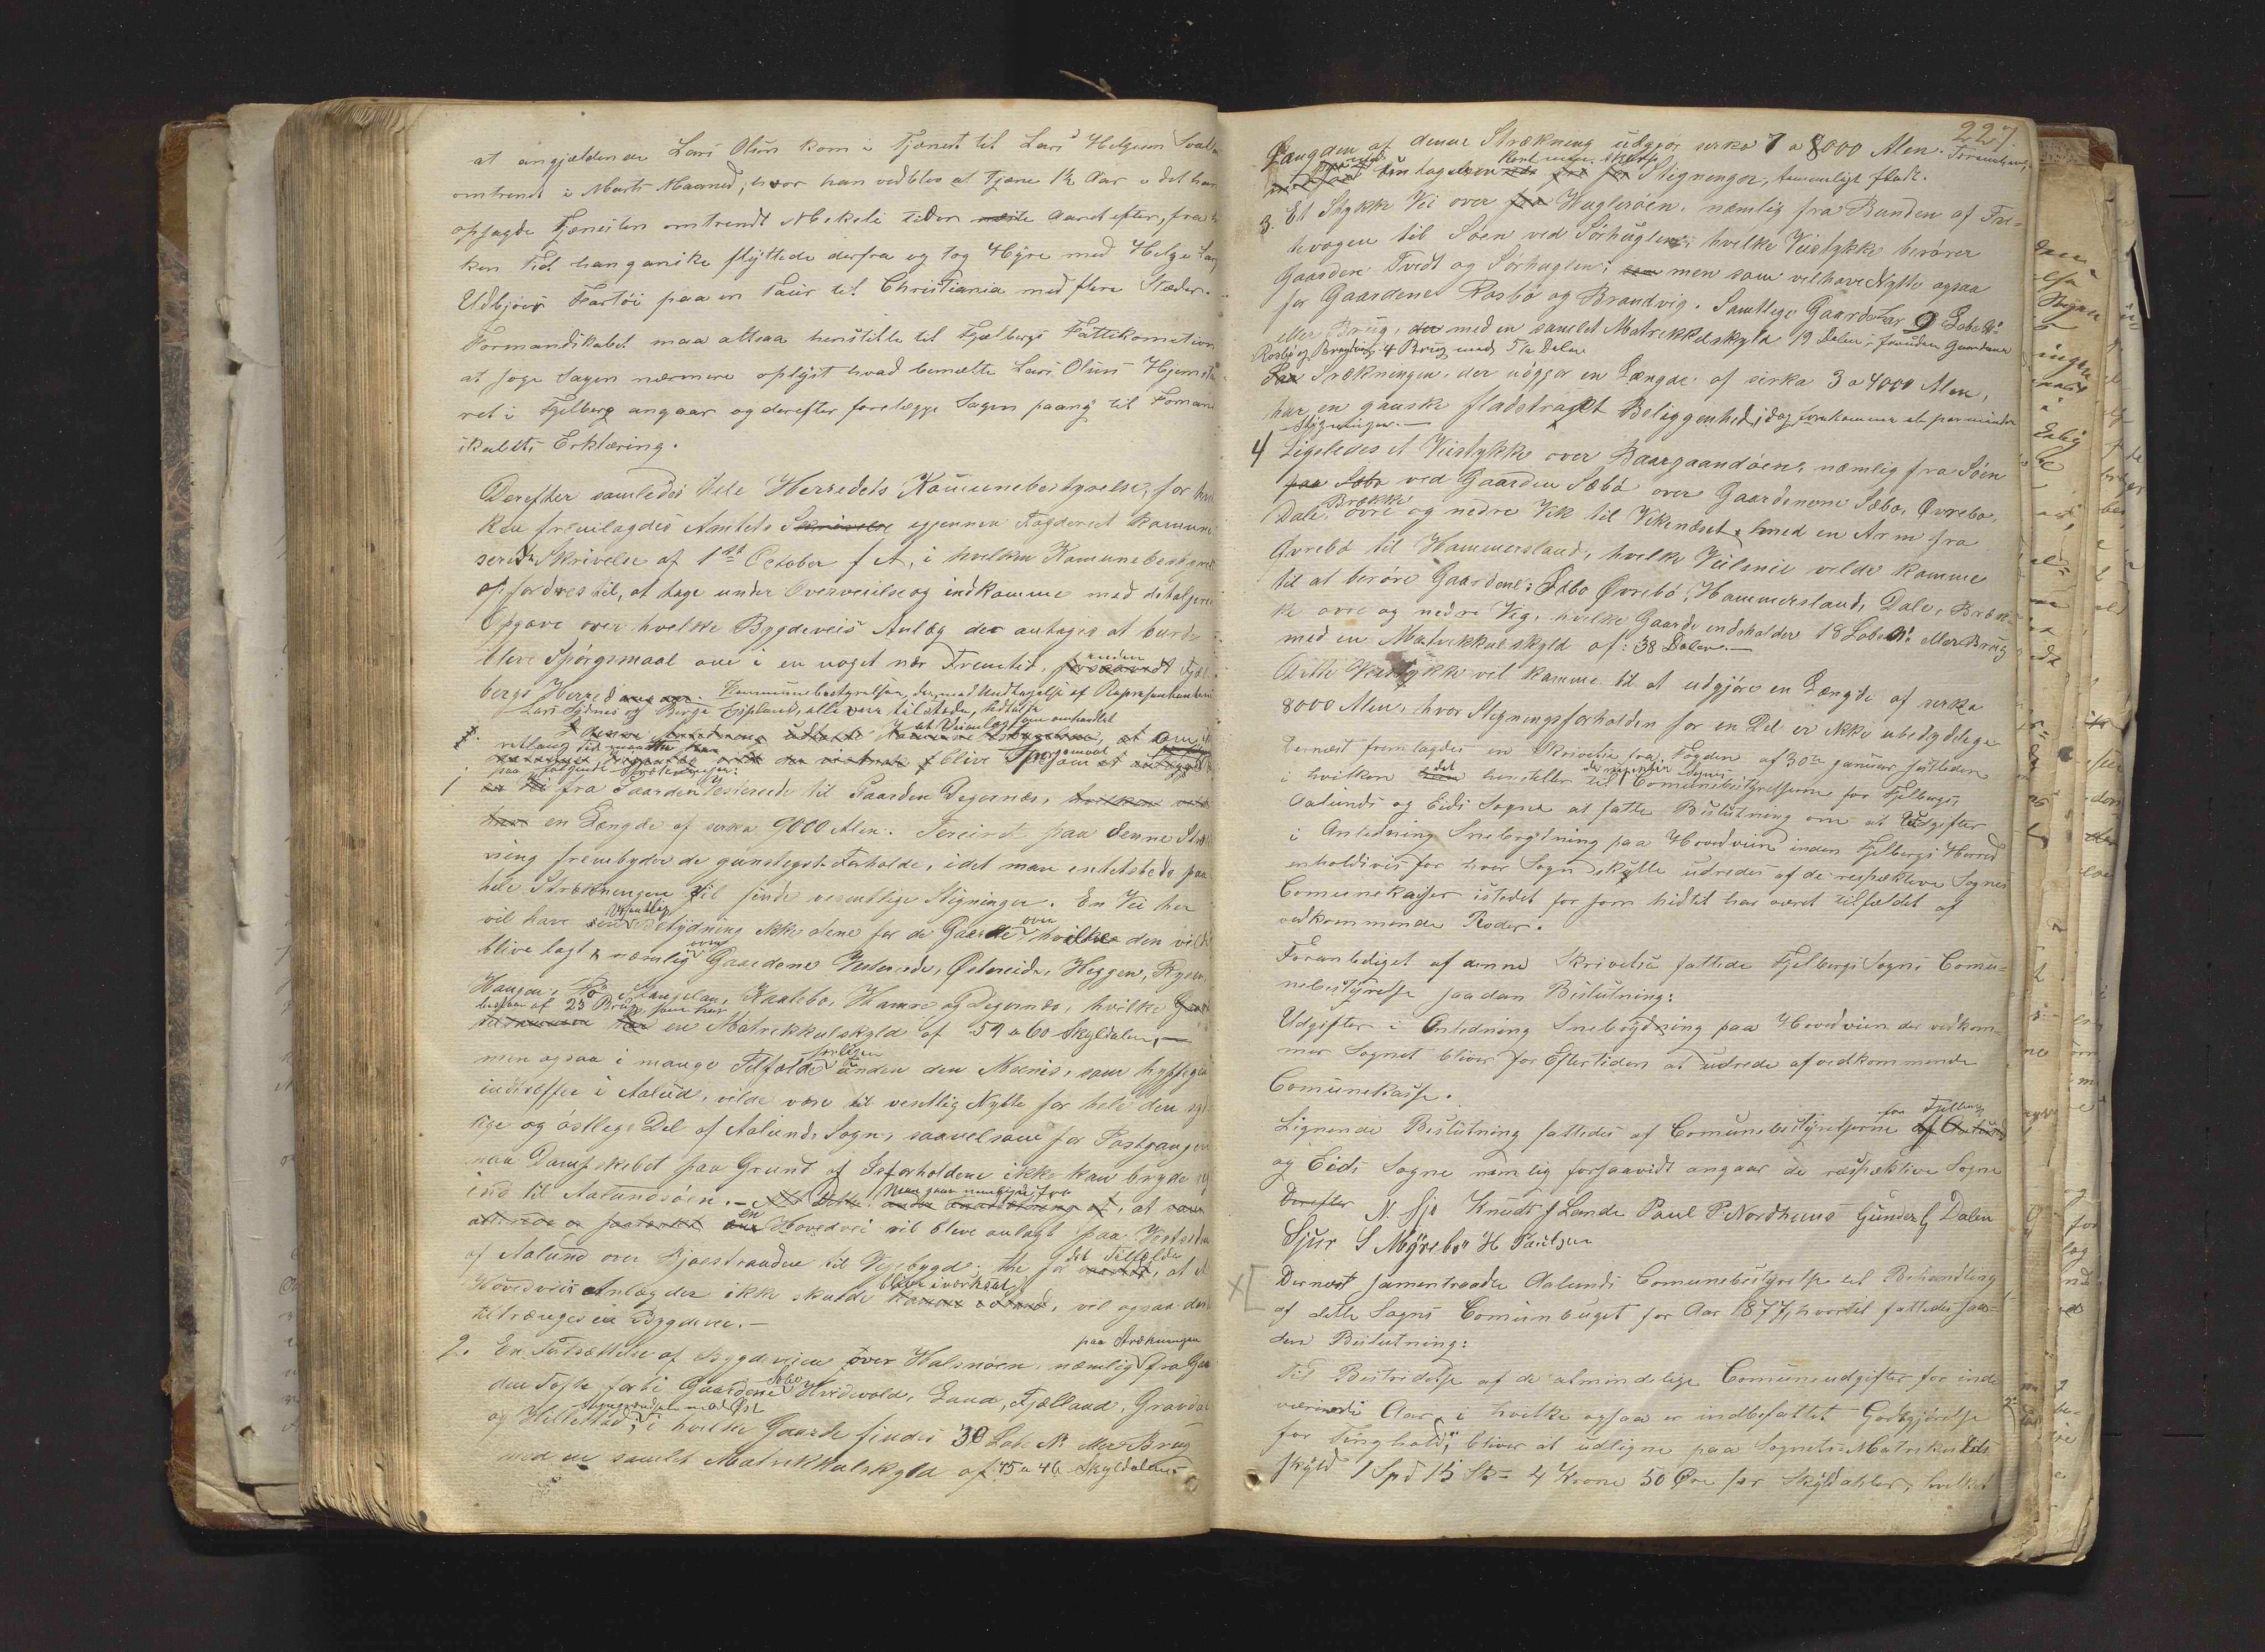 at angjældende Lars Olsen kom i Tjeneste til Lars Helgesen
omtrendt i Marts Maaned, hvor han vedblev at Tjene 1½ Aar i det han
opsagde Tjenesten omtrendt Mbekeli tider næste Aaret efter, fra
ken Tid han ganske flyttede derfra og tog Hyre med Helge
Udbjoes Fartöi paa en Tour til Christiania med flere Stæder.
Formandskabet maa altsaa henstille til Fjelbergs Fattikomission
at söge Sagen nærmere oplyst hvad bemelte Lars Olsens Hjemsta
ret i Fjelberg angaar og derefter forelegge Sagen paany til Forman
skabets Erklæring.
Derefter samledes hele Herredets Kommunebestyrelse, for hvil
ken fremlagdes Amtets Skrivelse igjennem Fogderiet kommuni
serede Skrivelse af 1ste October f A, i hvilken Kommunebestyrel
opfordres til, at tage under Overveielse og indkomme med detaljeret
Opgave over hvilke Bygdeveis Anlæg der antages at burde
blive Spörgsmaal om i en noget nær Fremtid, inden Fjel
bergs Herred Kommunebestyrelsen, der, med Undtagelse af Repræsentanterne
Lars Sydnes og Börge Espeland, alle vare tilstede, udtalte
at Veianlæg som omhandlet
blive Spörgsmaal
paa følgende Strækninger:
1 fra Gaarden Vestereide til Gaarden Degernæs,
en Længde af serka 9000 Alen. Tereinet paa denne Stræk
ning frembyder de gunstigste Forholde, idet man entetsteds paa
hele Strækningen vil finde vesentlige Stigninger. En Vei her
vil have væsentlig Betydning ikke alene for de Gaarde over hvilke den vilde
blive lagt, nemlig over Gaardene Vestereide, Östereide, Heggen, Ryen,
Haugen, Tö Stangeland, Kaatebo, Hamre og Degernæs, hvilke
bestaar af 25 Brug, som har
en Matrekkulskyld af 59 a 60 Skylddaler, —
men ogsaa i mange Tilfælde särligen under den Meenis, som hyppigen
indtreffer i Aalund, vilde være til vesentlig Nytte for hele den syd
lige og östlige Del af Aalunds Sogn, saavelsom for Postgangen
naa Dampskibet paa Grund af Isforholdene ikke kan bryde sig
ind til Aalundsöen. — Man gaar nemlig ud fra, at
en Hovedvei vil blive anlagt paa Vestsiden
af Aalund over Bjoestranden til Vejebygd; thi for det Tilfælde, at
Hovedveis Anlæg der ikke skulde blive iverksat, vil ogsaa der
tiltrænges en Bygdevei. —
2. En Fortsættelse af Bygdeveien over Halsnöen, nemlig paa Strækningen fra Gaar
den Tofte forbi Gaardene Sebø Hvidevold, Eana, Fjælland, Gravdal
og Hillestad, i hvilke Gaarde findes 30 Löbe No eller Brug
med en samlet Matrekkulskyld af 45 a 46 Skylddaler
227.
Længden af denne Strækning udgjør serka 7 a 8000 Alen. Tereinet,
paa nogle undtagelser kort men skarpe Stigninger, temmeligt fladt.
3. Et Stykke Vei over Huglesöen, nemlig fra Bunden af Tve
levogen til Söen ved Sörhuglen, hvilke Veistykke berörer
Gaardene Tvedt og Sörhuglen; men som vil have Nytte ogsaa
for Gaardene Rosbø og Brandvig. Samtlige Gaarde har 9 Löbe No
eller Brug, med en samlet Matrekkulskyld 19 Daler, foruden Gaardene
Rosbø og Brandvig 4 Brug med 5½ Daler
Strækningen, der udgjør en Længde af sirka 3 a 4000 Alen,
har en ganske fladstrakt Beliggenhed, idog forekommer et par mindre
Stigninger. —
4 Ligeledes et Veistykke over Baargaandöen, nemlig fra Söen
ved Gaarden Sæbö over Gaardenerne Sæbø, Övrebø,
Dale, Brække övre og nedre Vik til Vikenæset, med en Arm fra
Övrebö til Hammersland, hvilke Veilinie vilde komme
til at beröre Gaardene: Sæbø Övrebö, Hammersland, Dale, Bræk
ke övre og nedre Vig, hvilke Gaarde indeholder 18 Löbe No eller Brug
med en Matrekkulskyld af: 38 Daler. —
Dette Veistykke vil komme til at udgjöre en Længde af serka
8000 Alen, hvor Stigningsforholden for en Del er ikke ubetydelige
Dernæst fremlagdes en Skrivelse fra Fogden af 30te Januar sistleden
i hvilken det henstilles til Comunebestyrelserne for Fjelbergs,
Aalunds og Eids Sogne at fatte Beslutning om at Udgifter
i Anledning Snebrydning paa Hovedveien inden Fjelbergs Herred
enholdsvis for hver Sogn skulle udredes af de respektive Sognes
Comunekasser istedet for som hidtil har været Tilfældet af
vedkommende Roder.
Foranlediget af denne Skrivelse fattede Fjelbergs Sogns Comu
nebestyrelse saadan Beslutning:
Udgifter i Anledning Snebrydning paa Hovedveien der vedkom
mer Sognet bliver for Eftertiden at udrede af vedkommende
Comunekasse.
Lignende Beslutning fattedes af Comunebestyrelserne for Fjelberg
og Eids Sogne nemlig forsaavidt angaar de respektive Sogne
Derefter N. Sjo Knudt J Lande Paul P. Nordhuus Gunder G Dalen
Sjur S Myrebö H Paulsen
Dernæst sammentraadte Aalunds Comunebestyrelse til Behandling
af dette Sogns Comunbuget for Aar 1877, hvortil fattedes saa
dan Beslutning:
Til Bestridelse af de almindelige Comuneudgifter for inde
værende Aar, i hvilke ogsaa er indbefattet Godtgjörelse
for Tinghold, bliver at udligne paa Sognets Matrikuls
skyld 1 Spd 15 Sk = 4 Krone 50 Øre per Skylddaler, hvilket